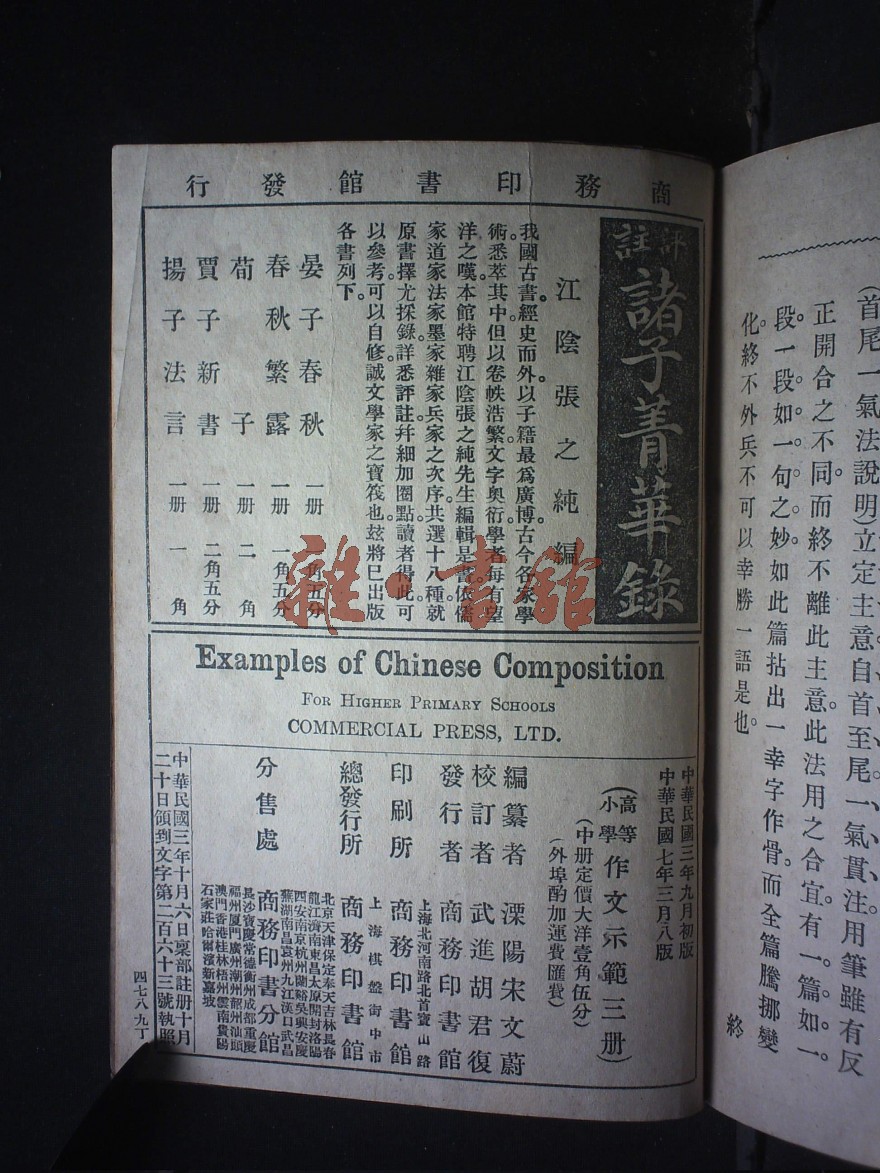 (首尾一氣法說明)立定主意自首至尾一氣貫注用筆雖有反
正開合之不同而終不離此主意。此法用之合宜有一篇如一
段。一段如一句之妙。如此篇拈出一幸字作骨。而全篇騰挪變
化終不外兵不可以幸勝一語是也。
終
商務印書館發行
評註
諸子菁華錄
江陰張之純編
我國古書。經史而外。以子籍最爲廣博。古今各家學
術。悉萃其中。但以卷帙浩繁。文字奧衍。學者每有望
洋之嘆。本館特聘江陰張之純先生編輯是書。依儒
家道家法家墨家雜家兵家之次序。共選十八種。就
原書擇尤採錄。詳悉評註。幷細加圈點。讀者得此。可
以參考。可以自修。誠文學家之寶筏也。玆將已出版
各書列下。
晏子春秋 一册 角五分
春秋繁露 一册 一角五分
荀子 一册 二角
賈子新書 一册 二角五分
揚子法言 一册 一角
雜·書館
Examples of Chinese Composition
FOR HIGHER PRIMARY SCHOOLS
COMMERCIAL PRESS, LTD.
中華民國三年九月初版
中華民國七年三月八版
(高等小學作文示範三册)
(中册定價大洋壹角伍分)
(外埠酌加運費匯費)
編纂者 溧陽宋文蔚
校訂者 武進胡君復
發行者 商務印書館
上海北河南路北首寶山路
印刷所 商務印書館
上海棋盤街中市
總發行所 商務印書館
北京天津保定奉天吉林長春
龍江濟南東昌太原開封洛陽
西安南京杭州蘭谿吳興安慶
蕪湖南昌袁州九江漢口武昌
分售處 商務印書分館
長沙寶慶常德衡州成都重慶
福州厦門廣州潮州韶州汕頭
澳門香港桂林梧州雲南貴陽
石家莊哈爾濱新嘉坡
中華民國三年十月六日稟部註册十月
二十日領到文字第二百六十三號執照
四七八九丁